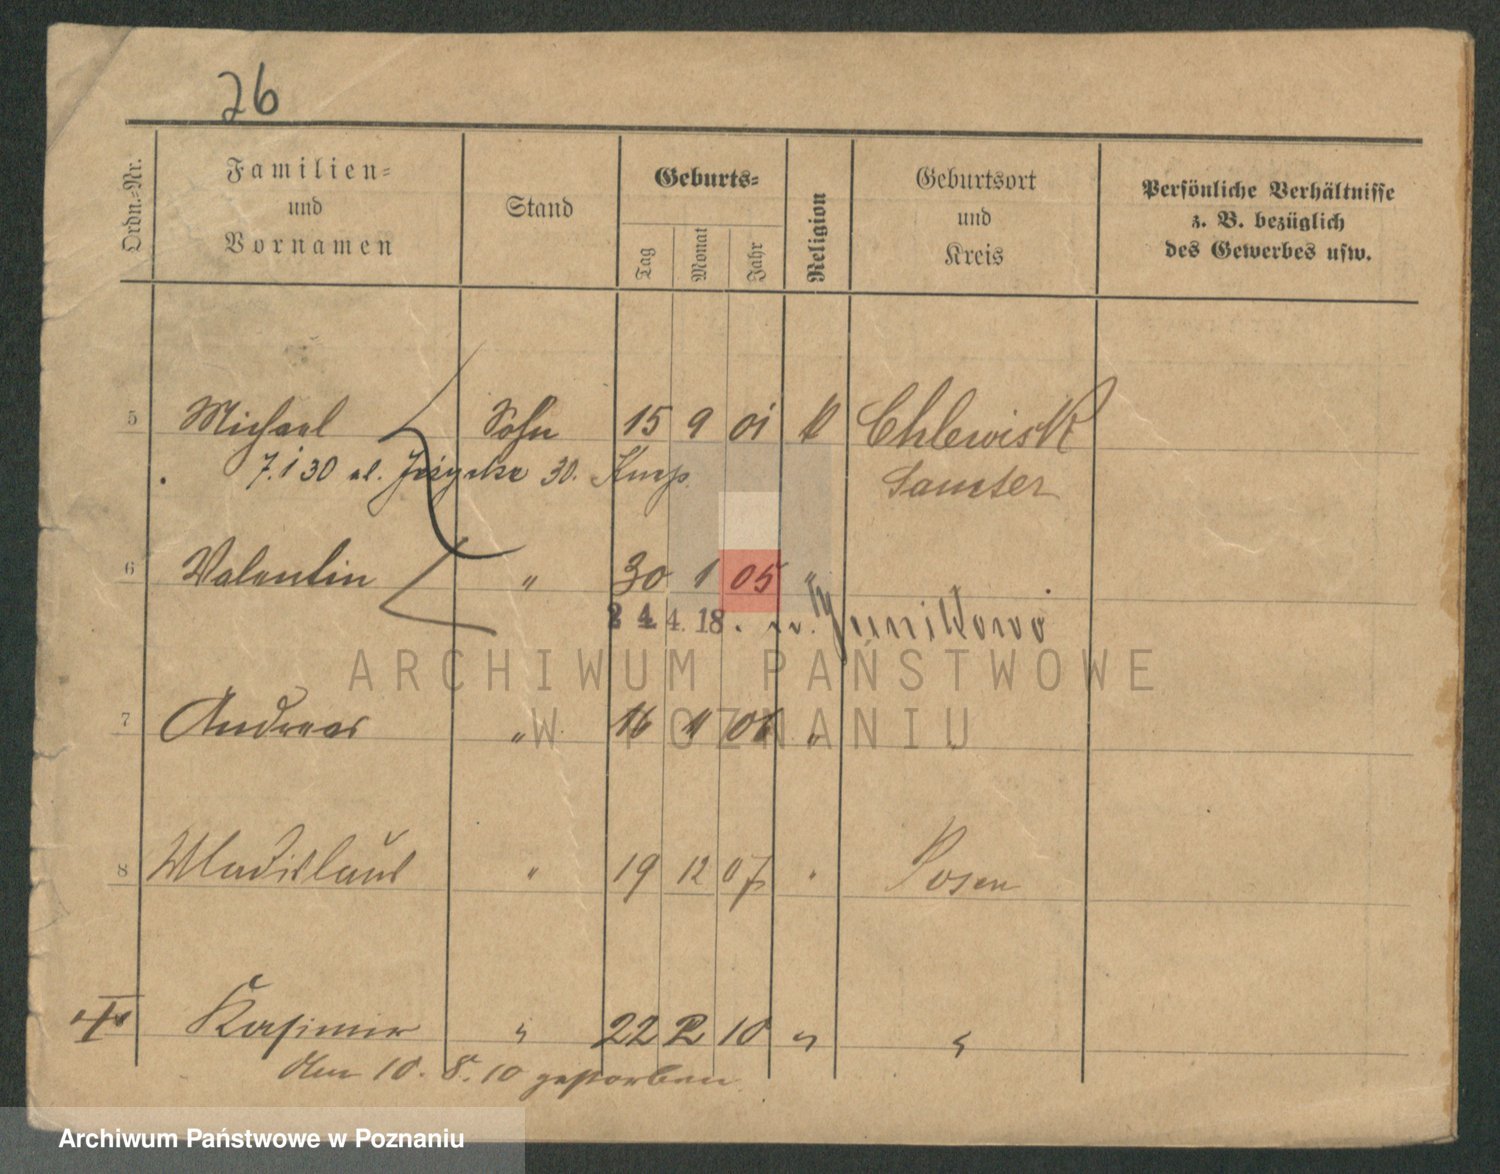 76
Ordn.=Nr.
Familien=
und
Vornamen
Stand
Geburts=
Tag
Monat
Jahr
Religion
Geburtsort
und
Kreis
Persönliche Verhältnisse
z. B. bezüglich
des Gewerbes usw.
5 Michael Sohn 15 9 01 k Chlewisk
7.1 30 ul. 30. Samter
6 Valentin " 30 1 05 "
24. 4. 18. Junikowo
ARCHIWUM PAŃSTWOWE
W POZNANIU
7 Andreas " 16 11 06 "
8 Wladislaus " 19 12 07 " Posen
Kasimir " 22 2 10 " "
den 10. 8. 10 gestorben
Archiwum Państwowe w Poznaniu